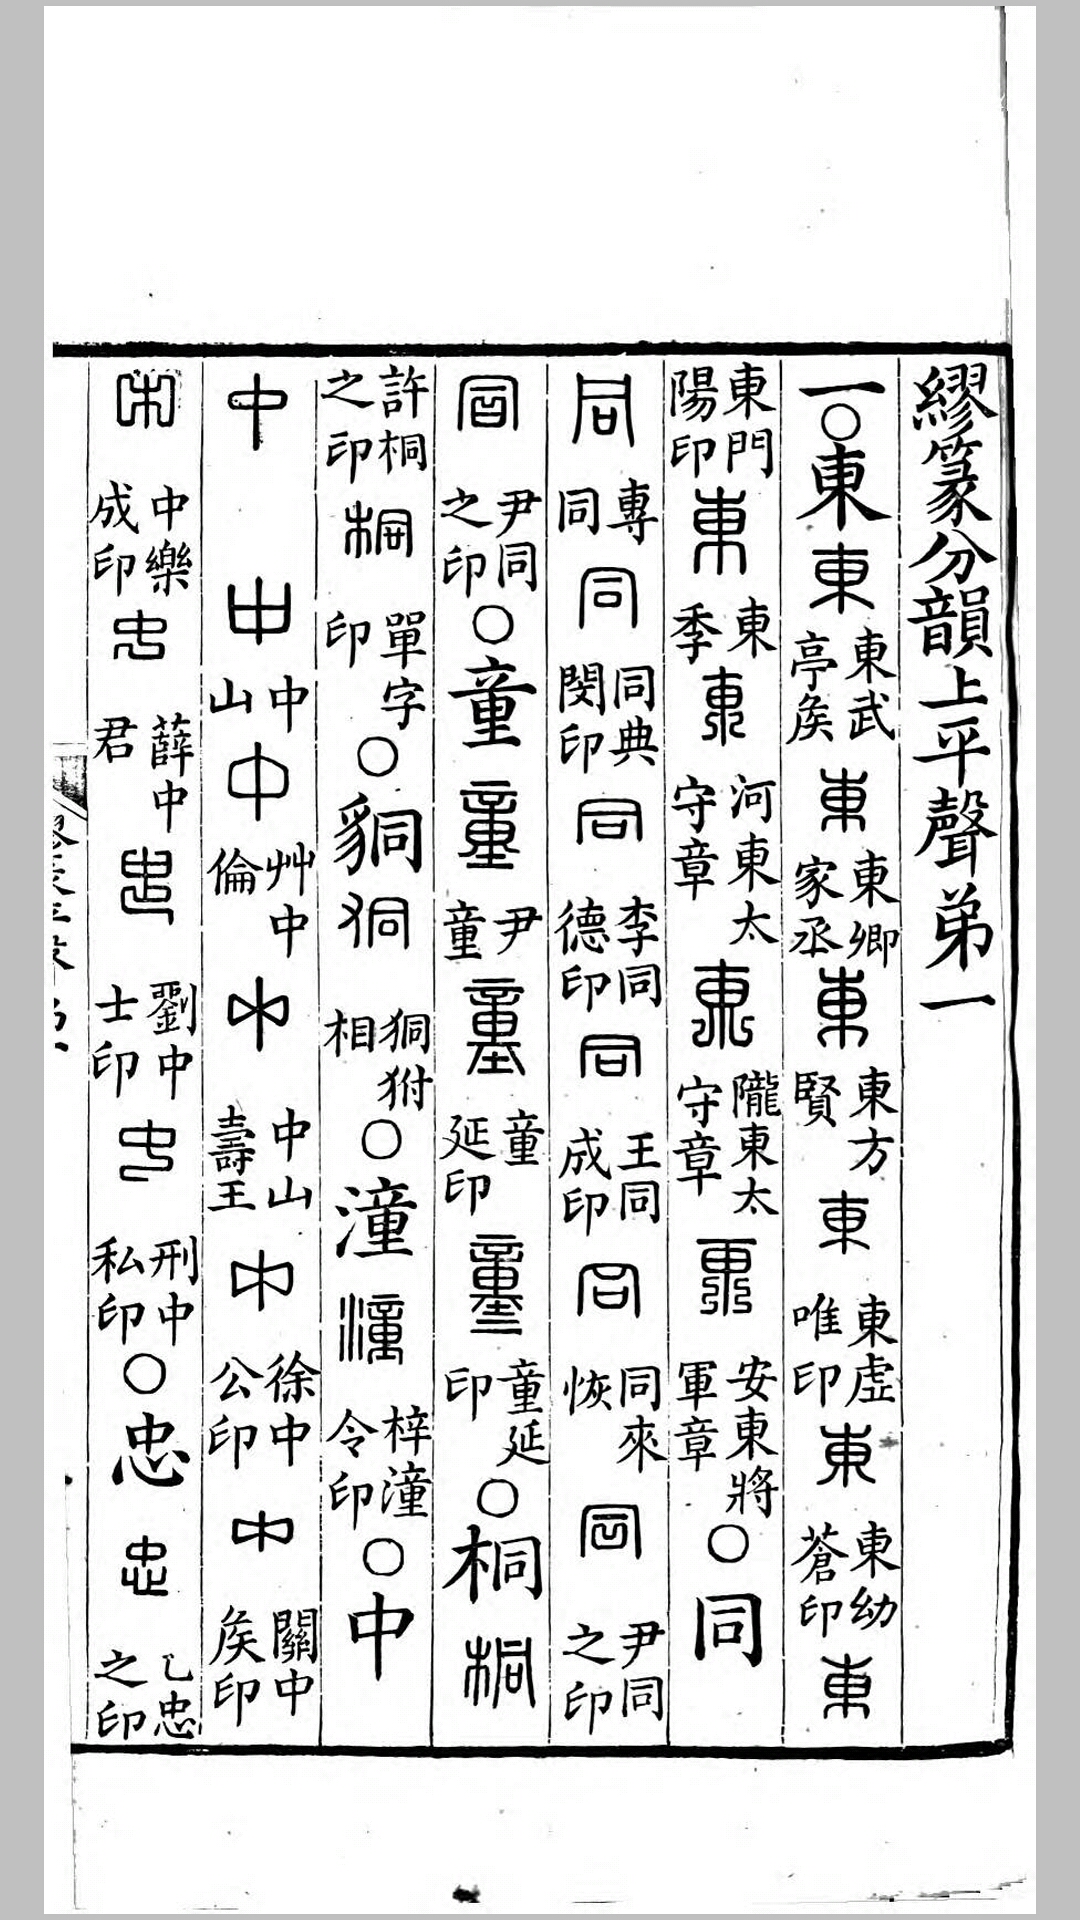 繆篆分韻上平聲弟一
一○東東東武亭矦東東卿家丞東東方賢東東虛唯印東東幼蒼印東
東門陽印東東季東河東太守章東隴東太守章東安東將軍章○同
同專同同同典閔印同李同德印同王同成印同同來恢同尹同之印
同尹同之印○童童尹童童童延印童童延印○桐桐
許桐之印桐單字印○狪狪相○潼潼梓潼令印○中
中中中山中艸中倫中中山壽王中徐中公印中關中矦印
中中樂成印中薛中君中劉中士印中刑中私印○忠忠乙忠之印